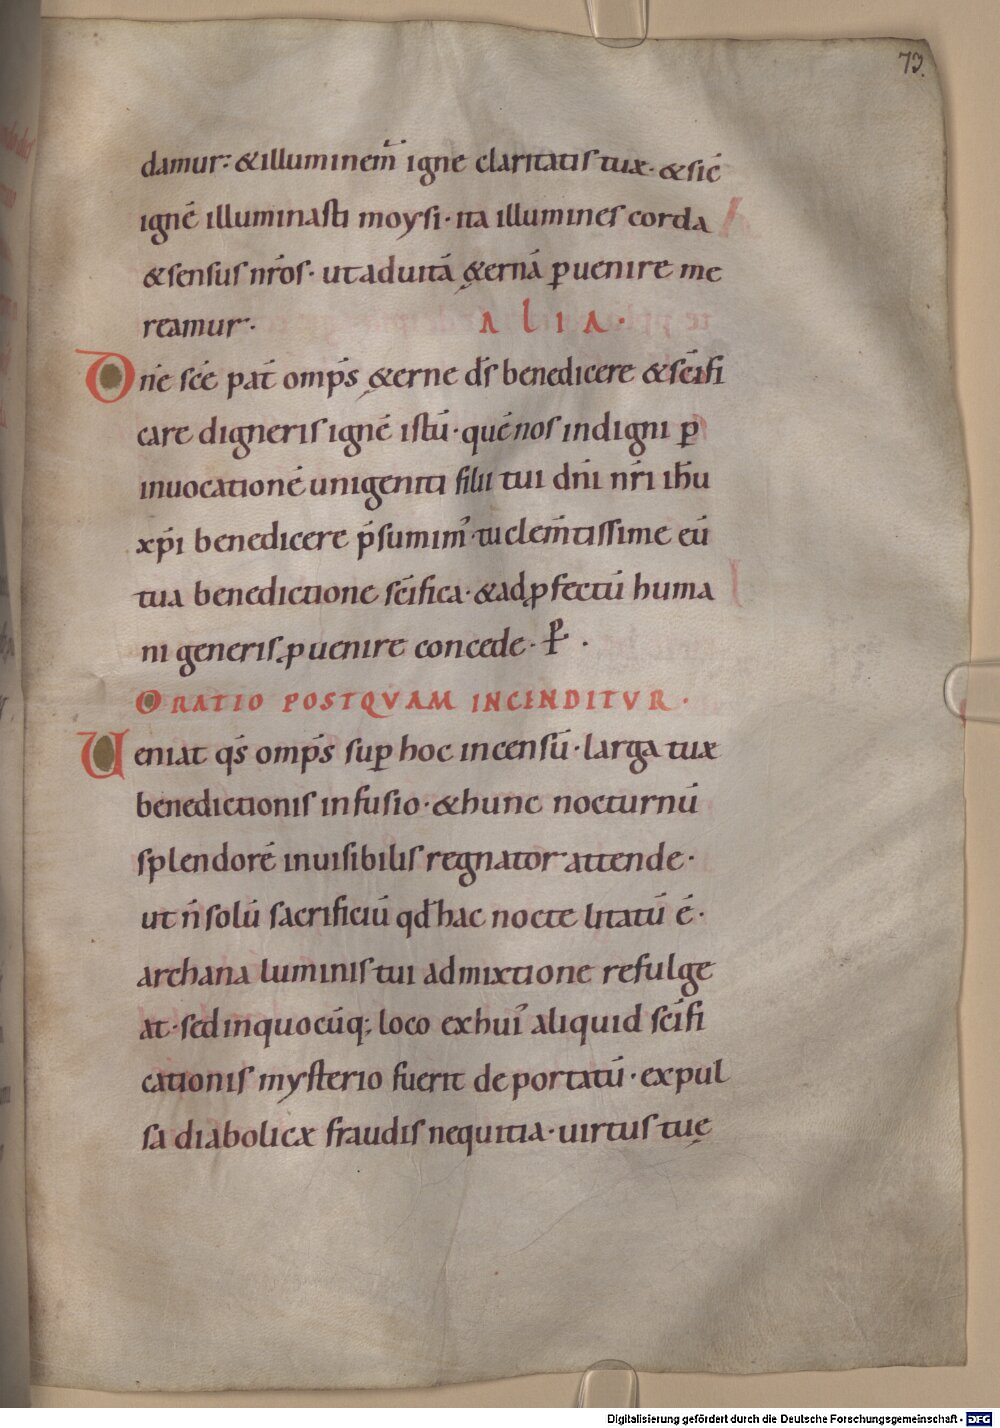 73.
damur: &illuminem̄ igne claritatis tuæ· & sic̄
ignē illuminasti moysi· ita illumines corda
& sensus nr̄os· ut ad uitā æt̄ernā ꝑuenire me
reamur·
ALIA·
Dn̄e sc̄e pat̄ omp̄s æt̄erne ds̄ benedicere & sc̄ifi
care digneris ignē istū· quē nos indigni ꝑ
inuocationē unigeniti filii tui dn̄i nr̄i ih̄u
xp̄i benedicere p̄sumimꝰ· tu clem̄tissime eū
tua benedictione sc̄ifica· & ad ꝓfectū huma
ni generis ꝑuenire concede· P̄·
ORATIO POSTQVAM INCENDITVR·
Ueniat qs̄ omp̄s suꝑ hoc incensū· larga tuæ
benedictionis infusio· & hunc nocturnū
splendorē inuisibilis regnator attende·
ut n̄ solū sacrificiū qđ hac nocte litatū ē·
archana luminis tui admixtione refulge
at· sed in quocūq; loco ex huiꝰ aliquid sc̄ifi
cationis mysterio fuerit deportatū· expul
sa diabolicæ fraudis nequitia· uirtus tuę
Digitalisierung gefördert durch die Deutsche Forschungsgemeinschaft - DFG